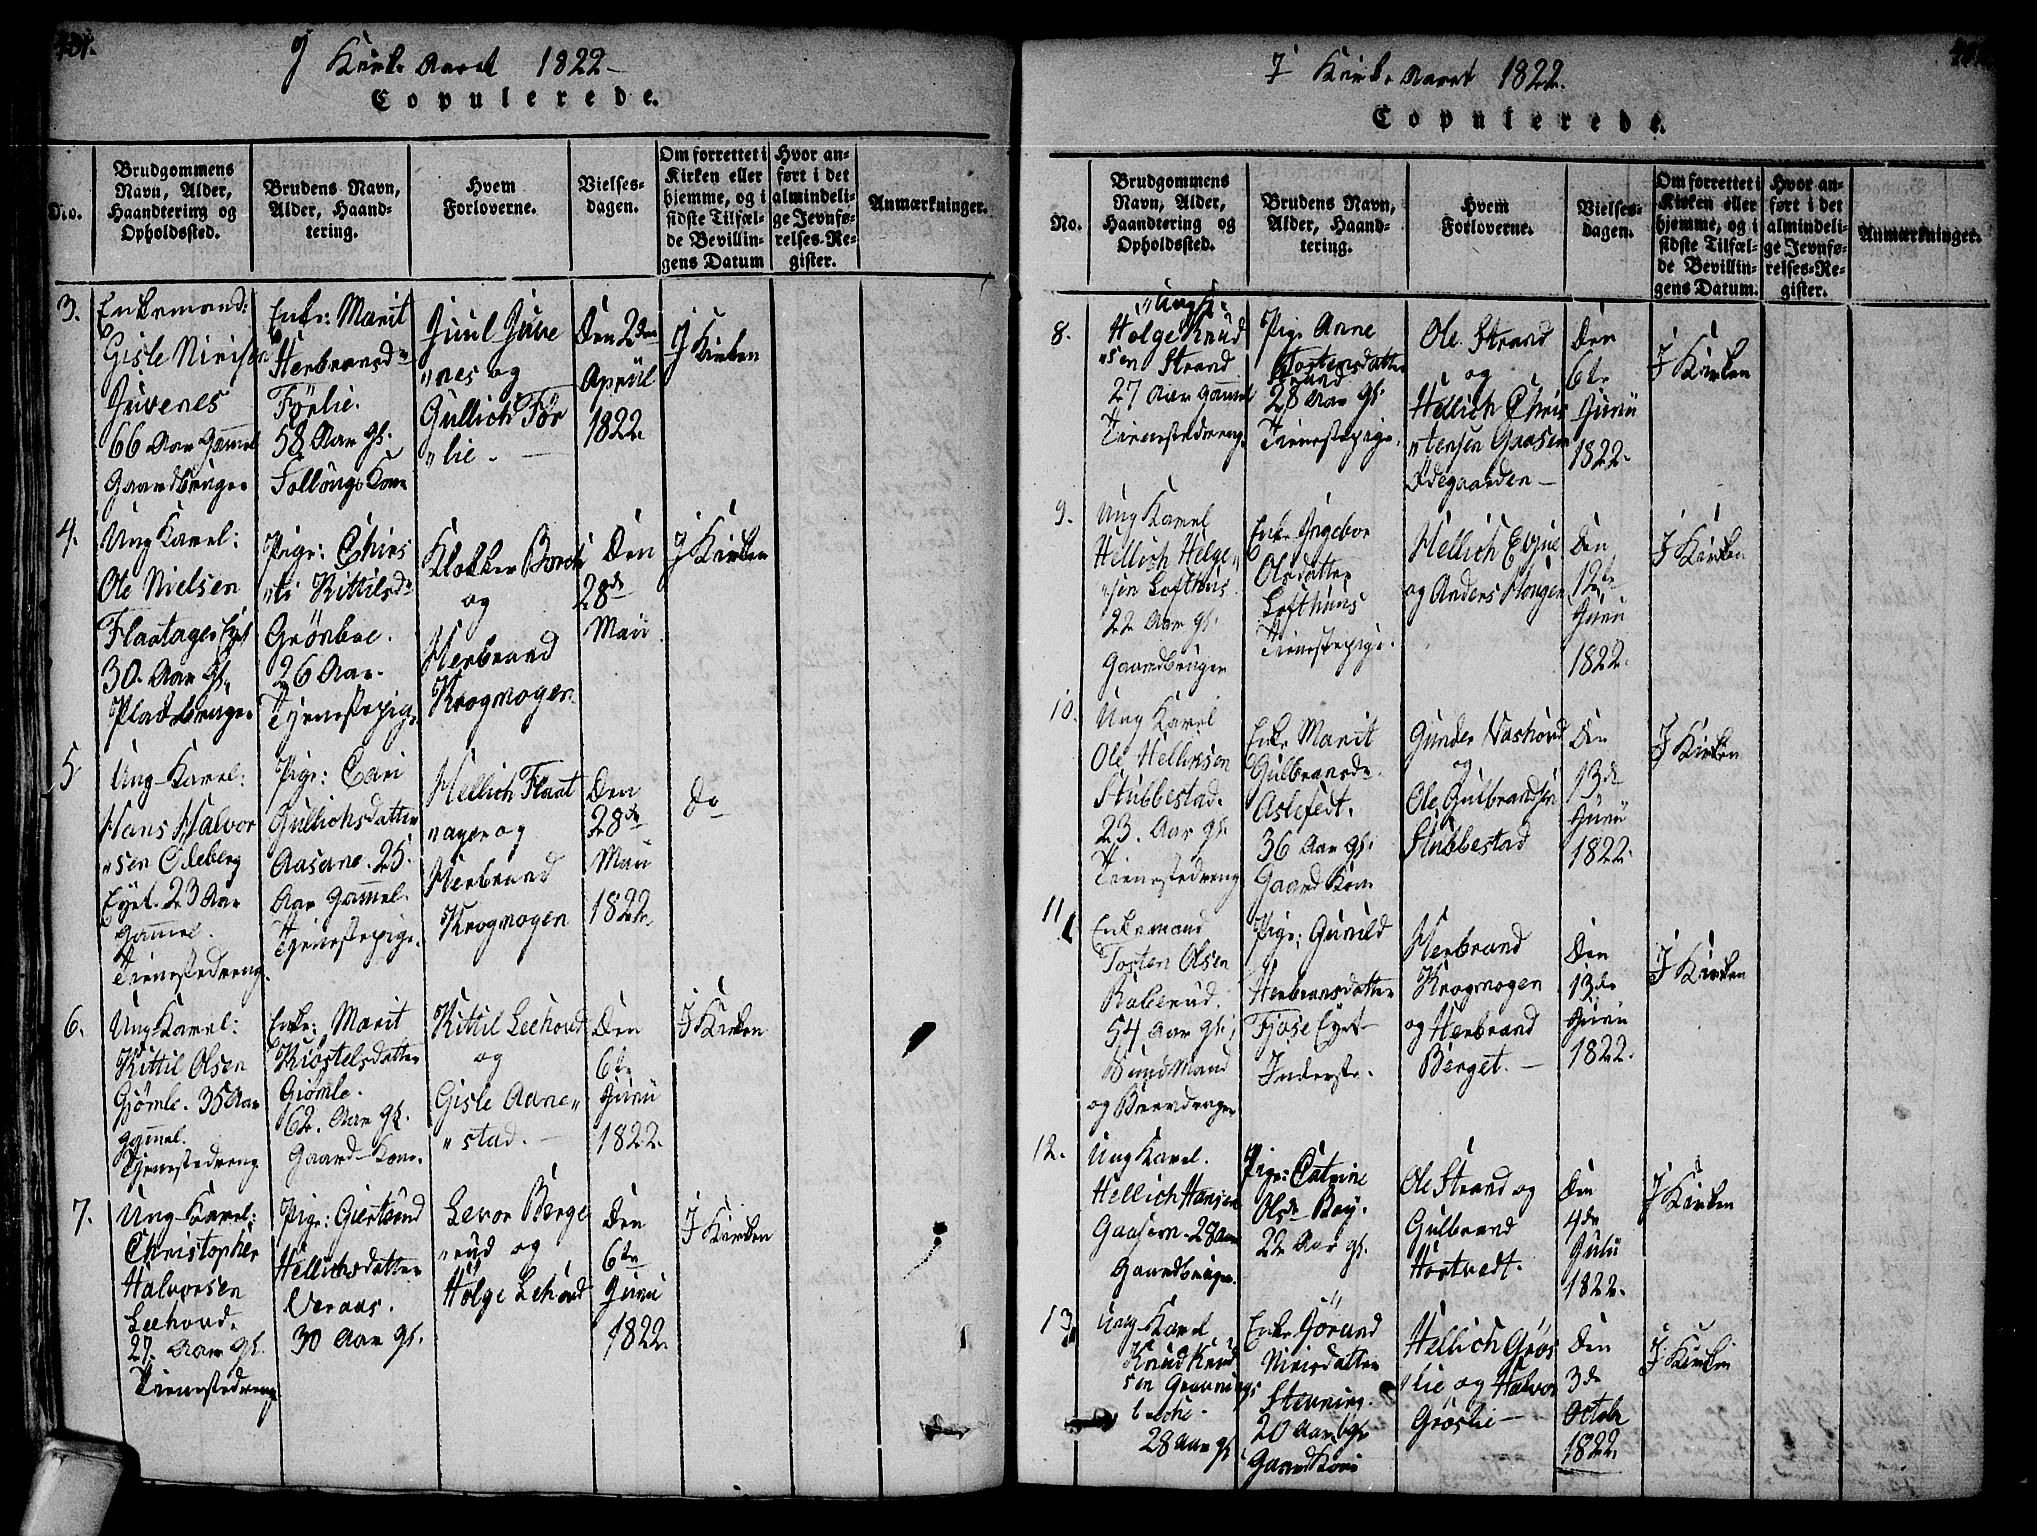 I Kirke Aaret 1822
Copulerede.
No.
Brudgommens
Navn, Alder,
Haandtering og
Opholdssted.
Brudens Navn,
Alder, Haand-
tering.
Hvem
Forloverne.
Vielses-
dagen.
Om forrettet i
Kirken eller
hjemme, og i
sidste Tilfæl-
de Bevillin-
gens Datum
Hvor an-
ført i det
almindeli-
ge Jevnfø-
relses-Re-
gister.
Anmærkninger.
3.
Enkemand:
Gisle
Juvenes
66 Aar Gammel
Gaardbruger
Enke: Marit
Herbransdr
Förlie.
58 Aar gl.
Follougs Kone
Juul Juve
"nes og
Gullich För
"lie.
Den 2den
April
1822.
I Kirken
4.
Ung Karel:
Ole Nielsen
Flaatager Eyet
30. Aar gl.
Pladsbruger
Pige: Chirs
"ti Kittilsdr
Grönboe.
26 Aar.
Tjenestepige
Klokker
og
Herbrand
Krogmogen
Den
28de
Maii
I Kirken
5
Ung Karel:
Hans Halvor
"sen
Eyet. 23 Aar
Gammel.
Tienestedreng
Pige: Cari
Gullichsdatter
Aasane. 25.
Aar Gammel.
Tjenestepige.
Hellich Flaat
"ager og
Herbrand
Krogmogen
Den
28de
Maii
1822.
Do
6.
Ung Karel:
Kittil Olsen
Gjömle. 35 Aar
gammel.
Tjenestedreng
Enke: Marit
Kiöstelsdatter
Giömle.
62. Aar gl.
Gaard-Kone.
Kittil Leehovd
og
Gisle Aane"
"stad.
Den
6te
Junii
1822.
I Kirken
7.
Ung Karel:
Christopher
Halvorsen
Leehovd.
27. Aar gl.
Tienestedreng
Pige: Giertrud
Hellichsdatter
Veraas.
30 Aar gl.
Levor Berge
"rud og
Hölge Lehovd
Den
6te
Junii
1822
I Kirken
I Kirke Aaret 1822.
Copulerede.
No.
Brudgommens
Navn, Alder,
Haandtering og
Opholdssted.
Brudens Navn,
Alder, Haand-
tering.
Hvem
Forloverne.
Vielses-
dagen.
Om forrettet i
Kirken eller
hjemme, og i
sidste Tilfæl-
de Bevillin-
gens Datum.
Hvor an-
ført i det
almindeli-
ge Jevnfø-
relses-Re-
gister.
Anmærkninger.
8.
Holge Knud
"sen Strand
27 Aar Gammel
Tienestedreng.
Pige Anne
Tostensdatter
Strand
28 Aar gl.
Tienestepige.
Ole Strand
og
Hellich Chris
"tensen Gaasen
Ödegaarden
Den
6te
Junii
1822.
I Kirken
9.
Ung Karel
Hellich Helge"
"sen Lofthus.
22 Aar gl.
Gaardbruger
Enke Ingebor
Olsdatter
Lofthuus
Tienestepige.
Hellich Evjue
og Anders Mogen
Den
12te
Junii
1822.
I Kirken
10.
Ung Karel
Ole Helliksen
Stubbestad.
23. Aar gl.
Tienestedreng
Enke Marit
Gulbransdr.
Aslefedt.
36 Aar gl.
Gaard Kone
Gunder Vashovd
og
Ole Gulbrandsen
Stubbestad
Den
13de
Junii
1822.
I Kirken
11
Enkemand
Tosten Olsen
Raberud.
54 Aar gl.
Huusmand
og
Pige: Gunild
Herbransdatter
Fjose Eyet
Inderste.
Herbrand
Krogmogen
og Herbrand
Berget.
Den
13de
Junii
1822.
I Kirken
12.
Ung Karel.
Hellich Hansen
Gaasern. 28 Aar
Gaardbruger.
Pige: Catrine
Olsdr Bøy.
22 Aar gl.
Ole Strand og
Gulbrand
Hovtvedt.
Den
4de
Julii
1822.
I Kirken
13
Ung Karel
Knud Knud
sen Gravnings
28 Aar gl
Enke Jörand
Nirisdatter
Stevning.
20 Aar gl
Gaard Kone
Hellich Grøs
"lie og Halvor
Grøslie
Den
3de
Octobr
1822
I Kirken